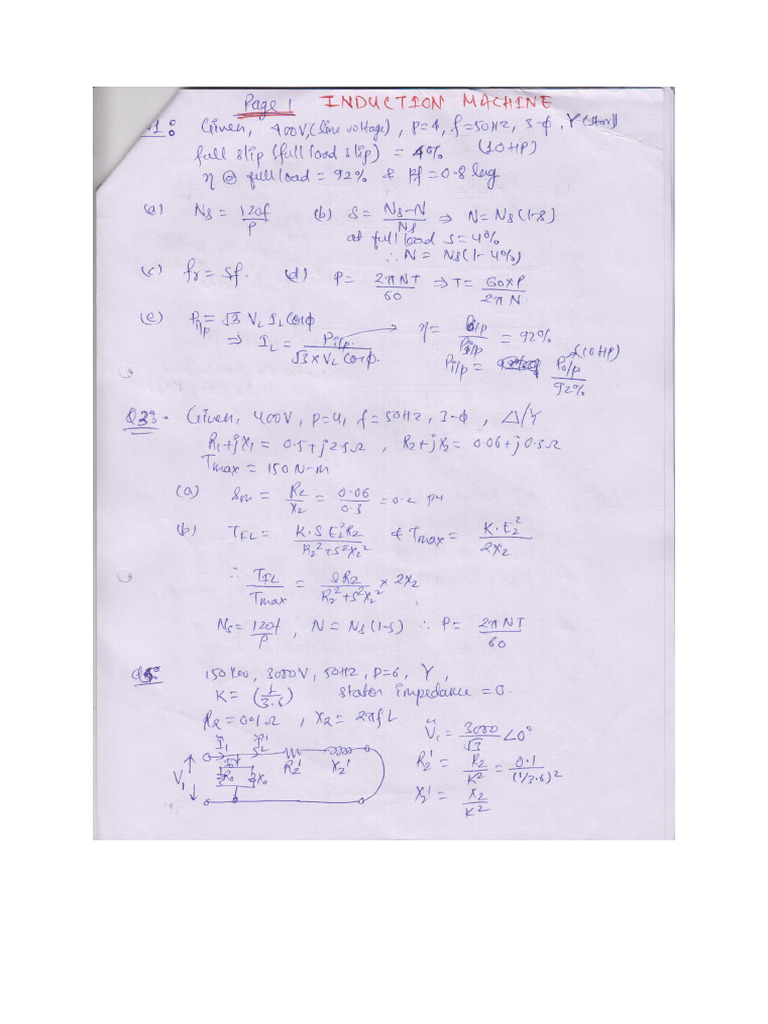 Page 1 INDUCTION MACHINE
Q1: Given, 400V, (line voltage), P=4, f=50HZ, 3-ϕ, Y (star)
full slip (full load slip) = 4% (10HP)
η @ full load = 92% & Pf = 0.8 lag
(a) Ns = 120f/P (b) S = Ns-N/Ns ⇒ N = Ns(1-S)
at full load s = 4%
∴ N = Ns(1-4%)
(c) fr = Sf. (d) P = 2πNT/60 ⇒ T = 60×P/2πN
(e) Pi/p = √3 VL IL Cosϕ → η = Po/p/Pi/p = 92%
⇒ IL = Pi/p/√3×VL Cosϕ Pi/p = Po/p/92% (10HP)
Given, 400V, P=4, f=50HZ, 3-ϕ, Δ/Y
R1+jX1 = 0.5+j2.5Ω, R2+jX2 = 0.06+j0.3Ω
Tmax = 150 N-m
(a) Sm = R2/X2 = 0.06/0.3 = 0.2 pu
(b) TFL = K.S E2²R2/R2²+S²X2² & Tmax = K.E2²/2X2
∴ TFL/Tmax = SR2/R2²+S²X2² × 2X2
Ns = 120f/P, N = Ns(1-S) ∴ P = 2πNT/60
Q5: 150 kW, 3000V, 50HZ, P=6, Y,
K = (1/3.6) stator impedance = 0.
R2 = 0.1Ω, X2 = 2πfL
V1 = 3000/√3 ∠0°
I1 I2' R2' X2' R2' = R2/K² = 0.1/(1/3.6)²
V1 R0 X0 X2' = X2/K²